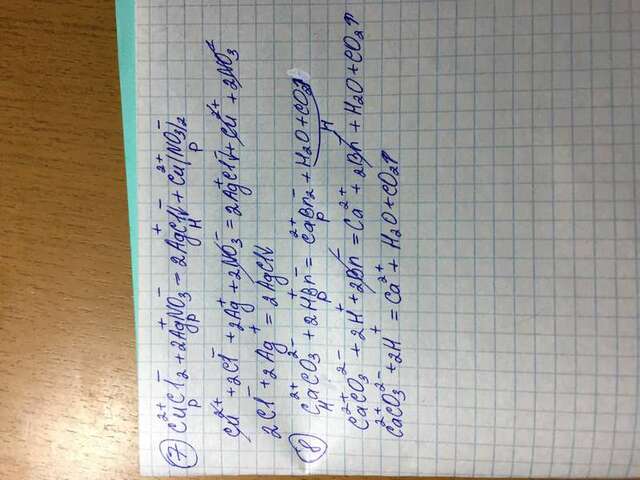 ⑦ Cu²⁺Cl₂⁻ + 2Ag⁺NO₃⁻ = 2Ag⁺Cl⁻↓ + Cu²⁺(NO₃)₂⁻
р р н р
Cu²⁺ + 2Cl⁻ + 2Ag⁺ + 2NO₃⁻ = 2AgCl↓ + Cu²⁺ + 2NO₃⁻
2Cl⁻ + 2Ag⁺ = 2AgCl↓
⑧ Ca²⁺CO₃²⁻ + 2H⁺Br⁻ = Ca²⁺Br₂⁻ + H₂O + CO₂↑
н р р н
Ca²⁺CO₃²⁻ + 2H⁺ + 2Br⁻ = Ca²⁺ + 2Br⁻ + H₂O + CO₂↑
Ca²⁺CO₃²⁻ + 2H⁺ = Ca²⁺ + H₂O + CO₂↑